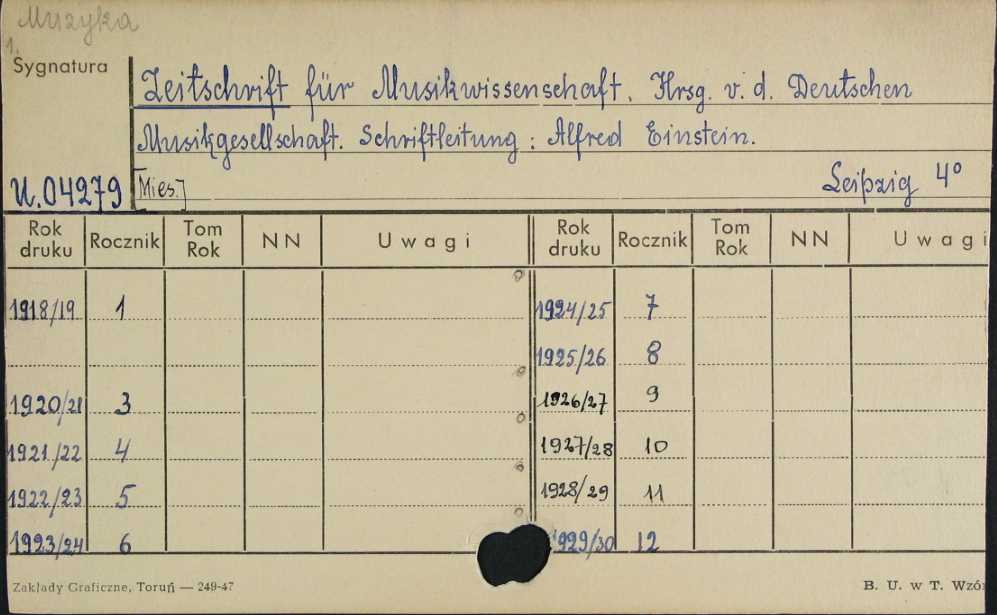 Muzyka
1.
Sygnatura
Zeitschrift für Musikwissenschaft. Hrsg. v. d. Deutschen
Musikgesellschaft. Schriftleitung: Alfred Einstein.
U.04279 [Mies.] Leipzig 4°
Rok druku Rocznik Tom Rok NN Uwagi Rok druku Rocznik Tom Rok NN Uwagi
1918/19 1 1924/25 7
1925/26 8
1920/21 3 1926/27 9
1921/22 4 1927/28 10
1922/23 5 1928/29 11
1923/24 6 1929/30 12
Zakłady Graficzne, Toruń — 249-47 B. U. w T. Wzór